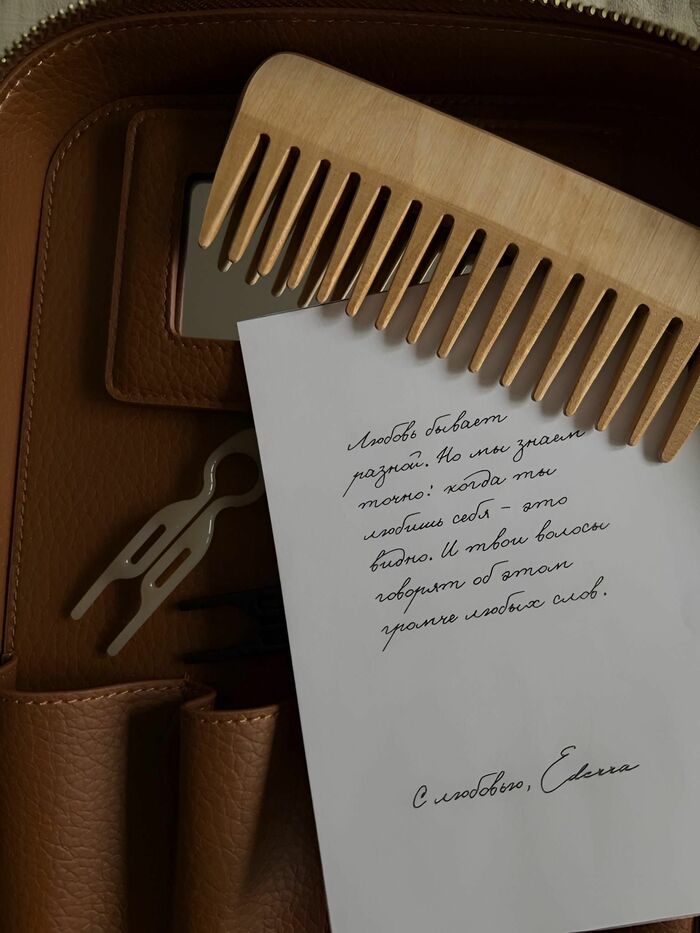 Любовь бывает
разной. Но мы знаем
точно: когда ты
любишь себя – это
видно. И твои волосы
говорят об этом
громче любых слов.
С любовью,